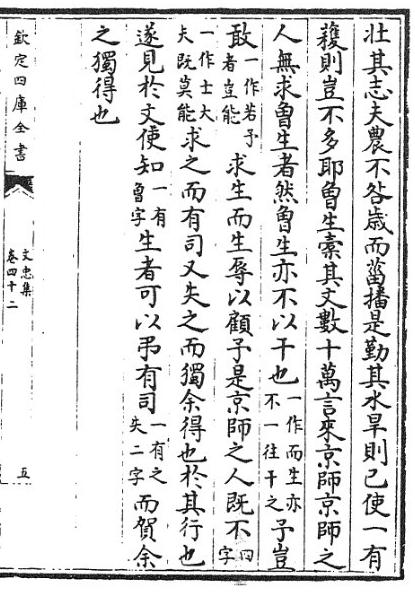 壯其志夫農不咎歲而菑播是勤其水旱則已使一有
穫則豈不多耶曾生橐其文數十萬言來京師京師之
人無求曾生者然曾生亦不以干也一作而生亦不一往干之予豈
敢一作若予者豈能求生而生辱以顧予是京師之人既不四字
一作士大夫既莫能求之而有司又失之而獨余得也於其行也
遂見於文使知一有曾字生者可以弔有司一有之失二字而賀余
之獨得也
欽定四庫全書
文忠集
卷四十二
五